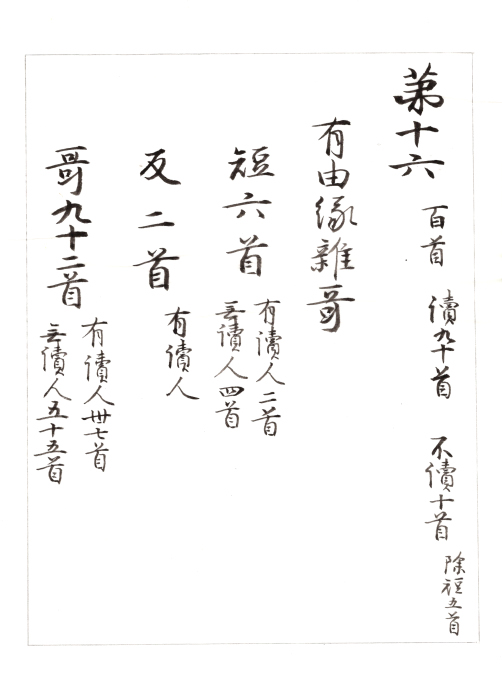 第十六 百首 儥九十首 不儥十首 除短五首
有由縁雜哥
短六首
有儥人二首
无儥人四首
反二首
有儥人
哥九十二首
有儥人卅七首
无儥人五十五首